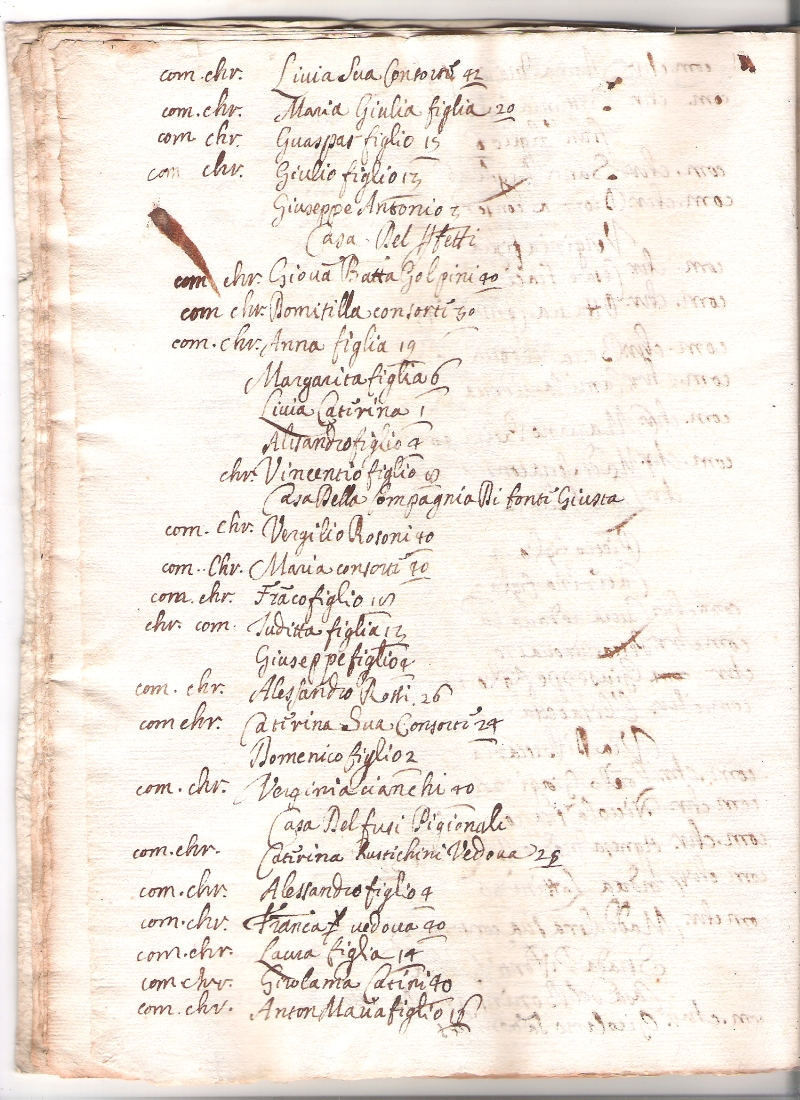 com. chr. Livia Sua Consorte 42
com. chr. Maria Giulia figlia 20
com chr. Guaspar figlio 15
com chr. Giulio figlio 13
Giuseppe Antonio 3
Casa Del
com chr. Giova Batta Golpini 40
com chr. Domitilla consorte 30
com. chr. Anna figlia 19
Margarita figlia 6
Livia Caterina 1
Alisandro figlio 4
chr. Vincentio figlio
Casa Della Compagnia Di fonte Giusta
com. chr. Vergilio Rosoni 40
com. Chr. Maria consorte 40
com. chr. Fraco figlio
chr. com. Iuditta figlia 13
Giuseppe figlio
com. chr. Alessandro Rossi 26
com chr. Caterina Sua Consorte 24
Domenico figlio 2
com. chr. Verginia cianchi 40
Casa Del fusi Pigionale
com. chr. Caterina Rustichini Vedova 25
com. chr. Alessandro figlio 4
com. chr. Franca vedova 40
com. chr. Laura figlia 14
com. chr. Girolama Catini 40
com. chr. Anton Maria figlio 16